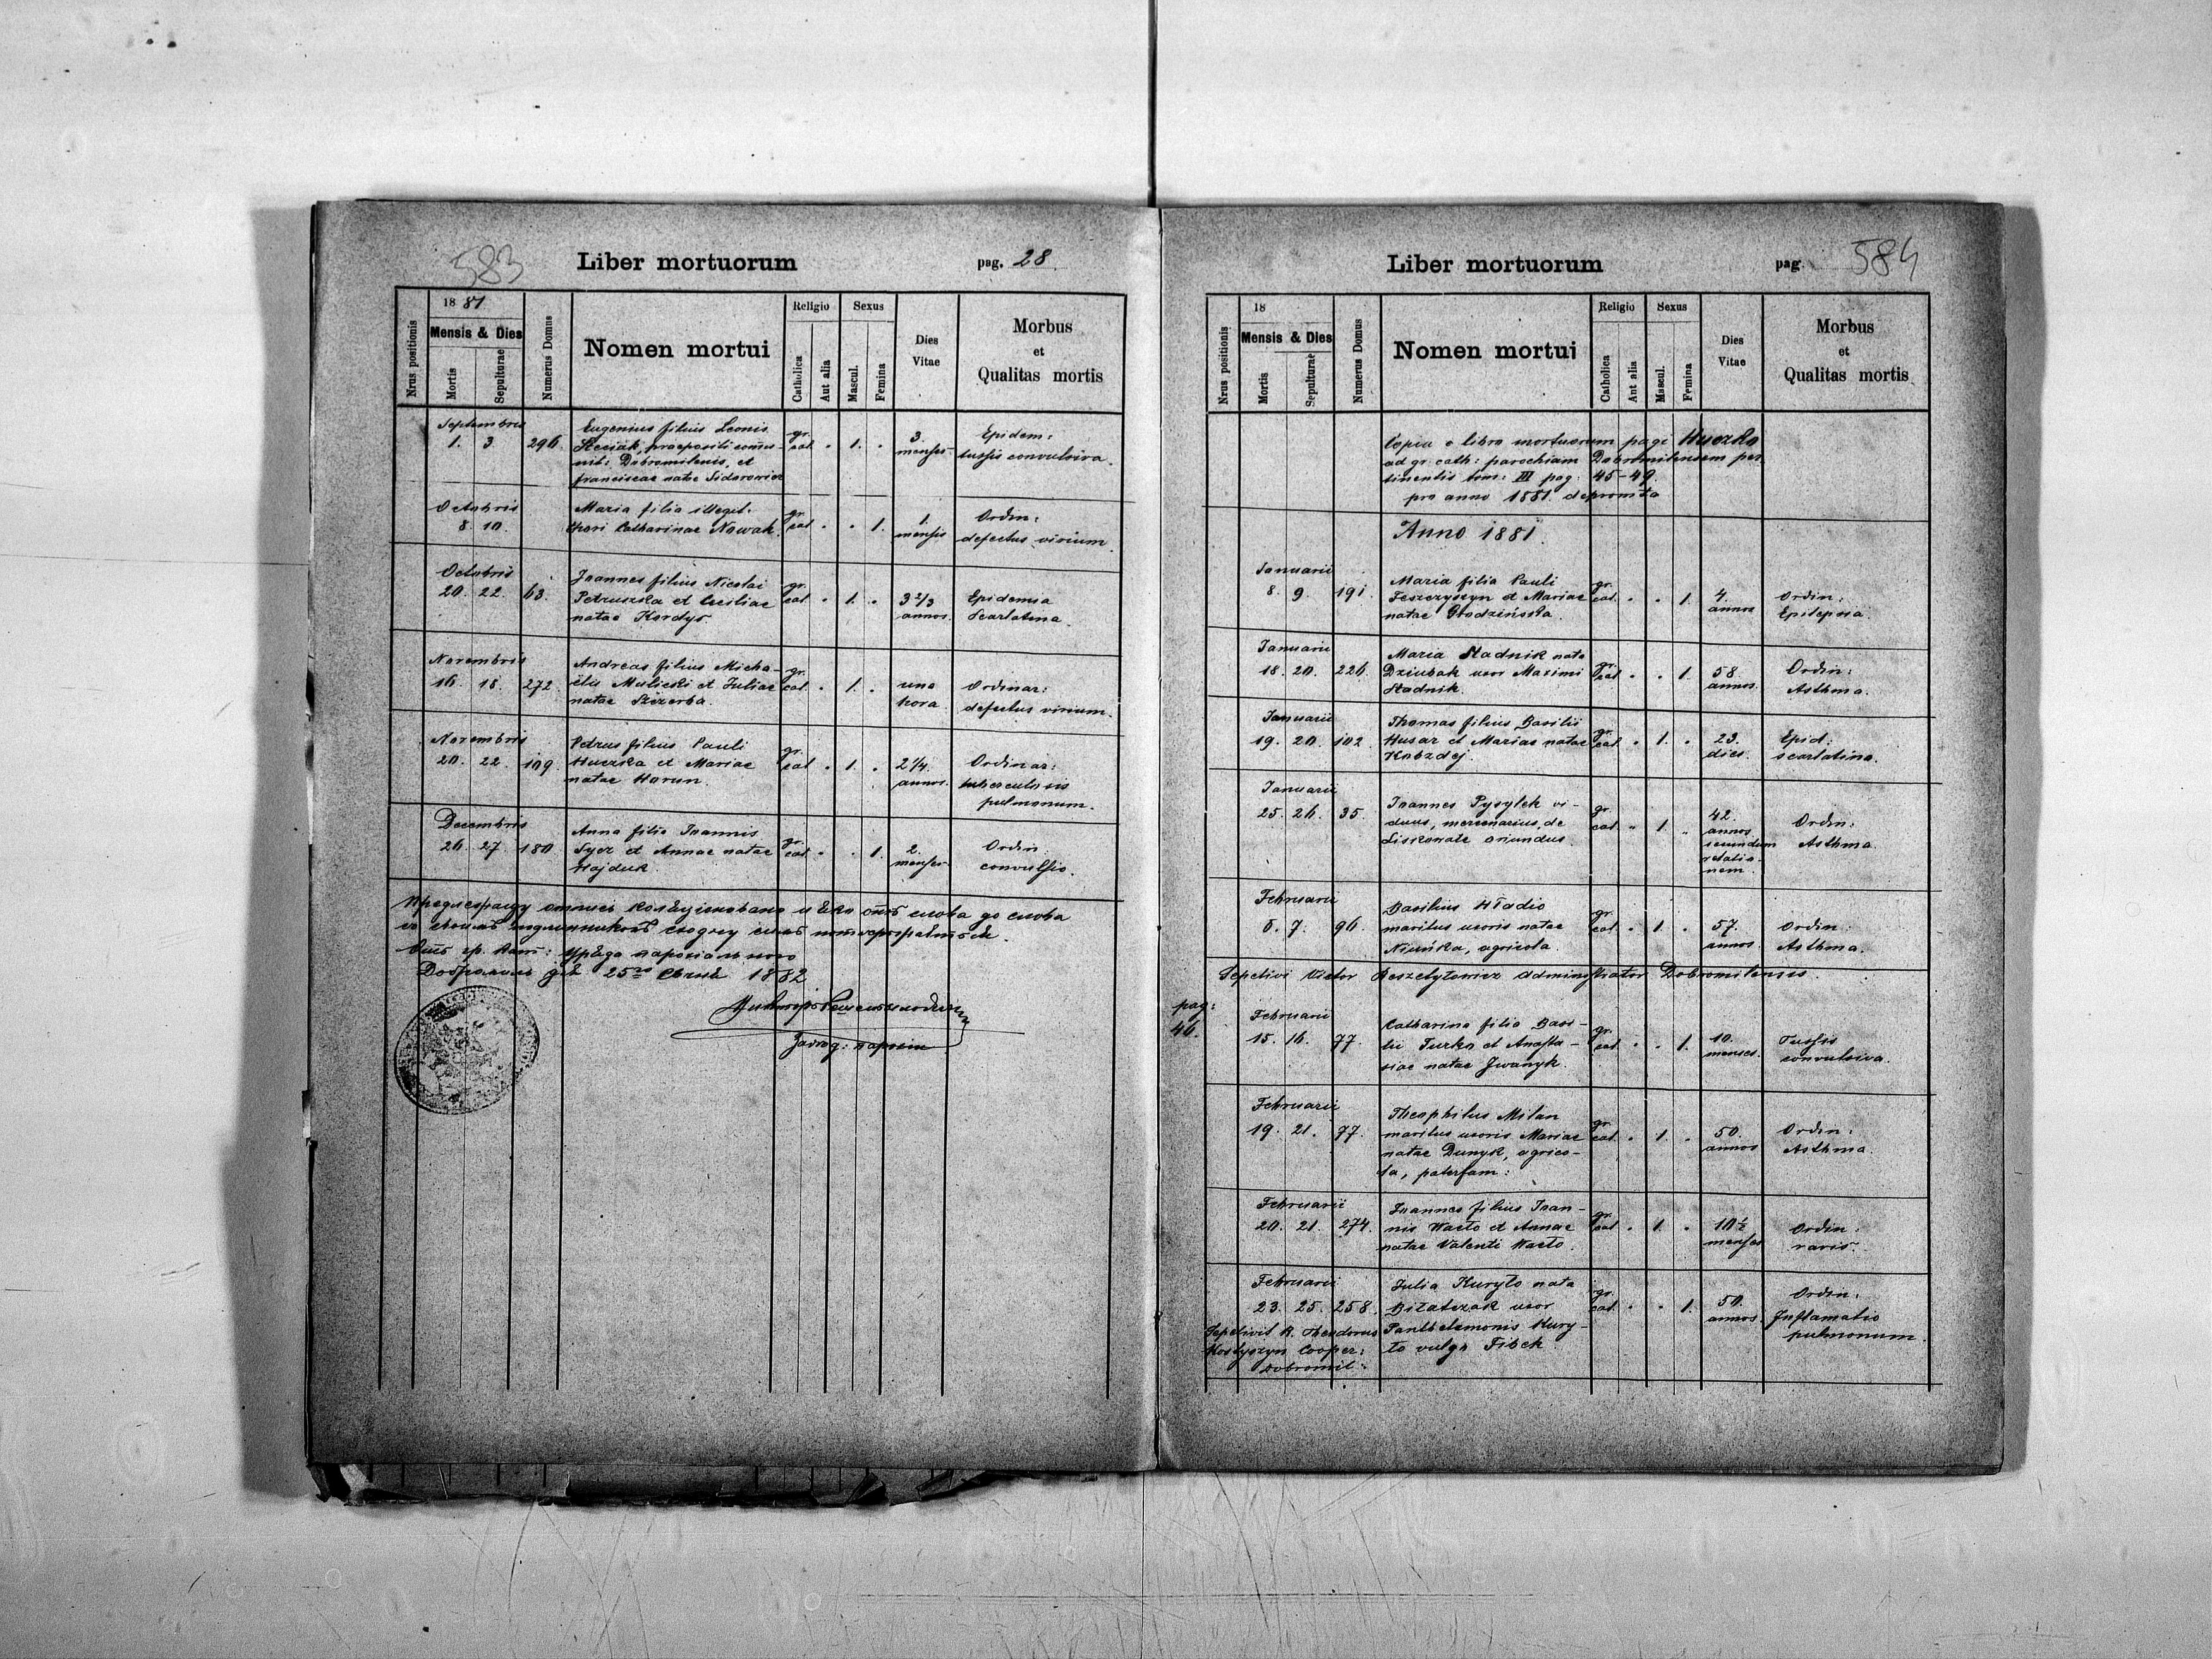 583
Liber mortuorum
pag. 28
18 81
Mensis & Dies
Nrus positionis
Mortis
Sepulturae
Numerus Domus
Nomen mortui
Religio
Catholica
Aut alia
Sexus
Mascul.
Femina
Dies
Vitae
Morbus
et
Qualitas mortis
Septembris
1. 3. 296.
Eugenius filius Leonis
praepositi commu-
nit: Dobromilensis, et
Franciscae natae Sidorowicz
gr. cat. " 1. "
3.
menses
Epidem:
tussis convulsiva.
Octobris
8. 10.
Maria filia illegit.
thori Catharinae Nowak.
gr. cat. " " 1.
1.
mensis
Ordin:
defectus virium.
Octobris
20. 22. 63.
Joannes filius Nicolai
Petruszka et Ceciliae
natae Kordys
gr. cat. " 1. "
3 2/3
annos.
Epidemia
Scarlatina.
Novembris
16. 18. 272.
Andreas filius Micha-
elis Mulicki et Juliae
natae Szczerba.
gr. cat. " 1. "
una
hora
Ordinar:
defectus virium.
Novembris
20. 22. 109.
Petrus filius Pauli
Huczka et Mariae
natae Horun.
gr. cat. " 1. "
2 1/4.
annos.
Ordinar:
tuberculosis
pulmonum.
Decembris
26. 27. 180.
Anna filia Joannis
Syez et Annae natae
Hajduk.
gr. cat. " " 1.
2.
menses
Ordin:
convulsio.
слова до слова
Добромиль дня 25го 1882
584
Liber mortuorum
pag.
18
Mensis & Dies
Nrus positionis
Mortis
Sepulturae
Numerus Domus
Nomen mortui
Religio
Catholica
Aut alia
Sexus
Mascul.
Femina
Dies
Vitae
Morbus
et
Qualitas mortis
Copia e libro mortuorum pagi Huczko
ad gr. cath: parochiam Dobromilensem per-
tinentis tom: III pag. 45-49.
pro anno 1881. depromta
Anno 1881.
Januarii
8. 9. 191.
Maria filia Pauli
Leszczyszyn et Mariae
natae Grodzińska.
gr. cat. " " 1.
4.
annos
Ordin:
Epilepsia.
Januarii
18. 20. 226.
Maria Stadnik nata
Dziubak uxor Maximi
Stadnik.
gr. cat. " " 1.
58.
annos.
Ordin:
Asthma.
Januarii
19. 20. 102.
Thomas filius Basilii
Husar et Mariae natae
Kobzdej.
gr. cat. " 1. "
23.
dies.
Epid:
scarlatina.
Januarii
25. 26. 35.
Joannes Pysylek vi-
duus, mercenarius, de
Liskowate oriundus.
gr. cat. " 1. "
42.
annos
secundum
relatio-
nem.
Ordin:
Asthma.
Februarii
6. 7. 96.
Basilius Hładio
maritus uxoris natae
agricola.
gr. cat. " 1. "
57.
annos.
Ordin:
Asthma.
Sepelivi Victor Reszetyłowicz Administrator Dobromilensis.
pag:
46.
Februarii
15. 16. 77.
Catharina filia Basi-
lii Turko et Anasta-
siae natae Jwanyk.
gr. cat. " " 1.
10.
menses.
Tussis
convulsiva.
Februarii
19. 21. 77.
Theophilus Milan
maritus uxoris Mariae
natae Dunyk, agrico-
la, paterfam:
gr. cat. " 1. "
50.
annos
Ordin:
Asthma.
Februarii
20. 21. 274.
Joannes filius Joan-
nis Wacło et Annae
natae Valenti Wacło.
gr. cat. " 1. "
10 1/2
menses
Ordin:
Februarii
23. 25. 258.
Julia Kuryło nata
Biłatczak uxor
Panthelemonis Kury-
ło vulgo Fibek.
gr. cat. " " 1.
50.
annos.
Ordin:
Inflamatio
pulmonum.
Sepelivit R. Theodorus
Kostyszyn Cooper:
Dobromil: